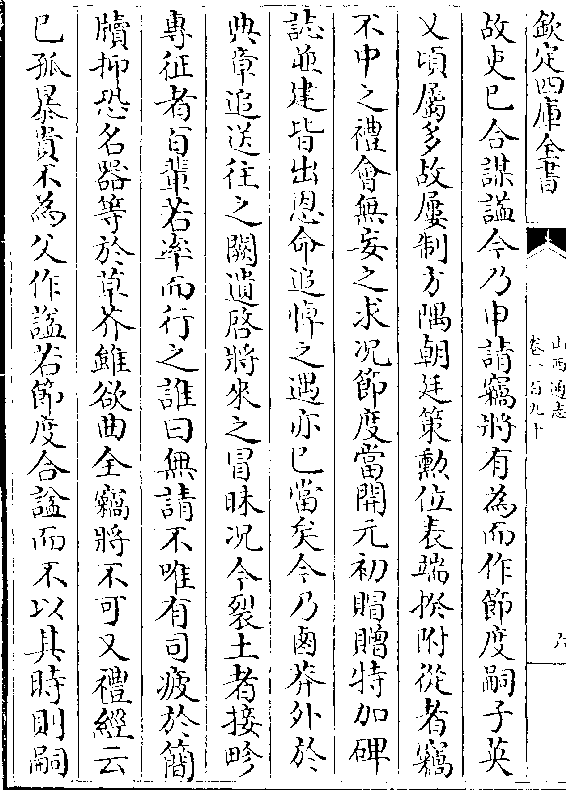 欽定四庫全書
山西通志
卷一百九十
六
故吏已合謀謚今乃申請竊將有為而作節度嗣子英
乂頃屬多故屢制方隅朝廷策勲位表端揆附從者竊
不中之禮會無妄之求况節度當開元初賵贈特加碑
誌並建皆出恩命追悼之遇亦已當矣今乃鹵莽外於
典章追送往之闕遺啓將來之冒昧况今裂土者接畛
專征者百輩若率而行之誰曰無請不唯有司疲於簡
牘抑恐名器等於草芥雖欲曲全竊將不可又禮經云
已孤暴貴不為父作謚若節度合謚而不以其時則嗣